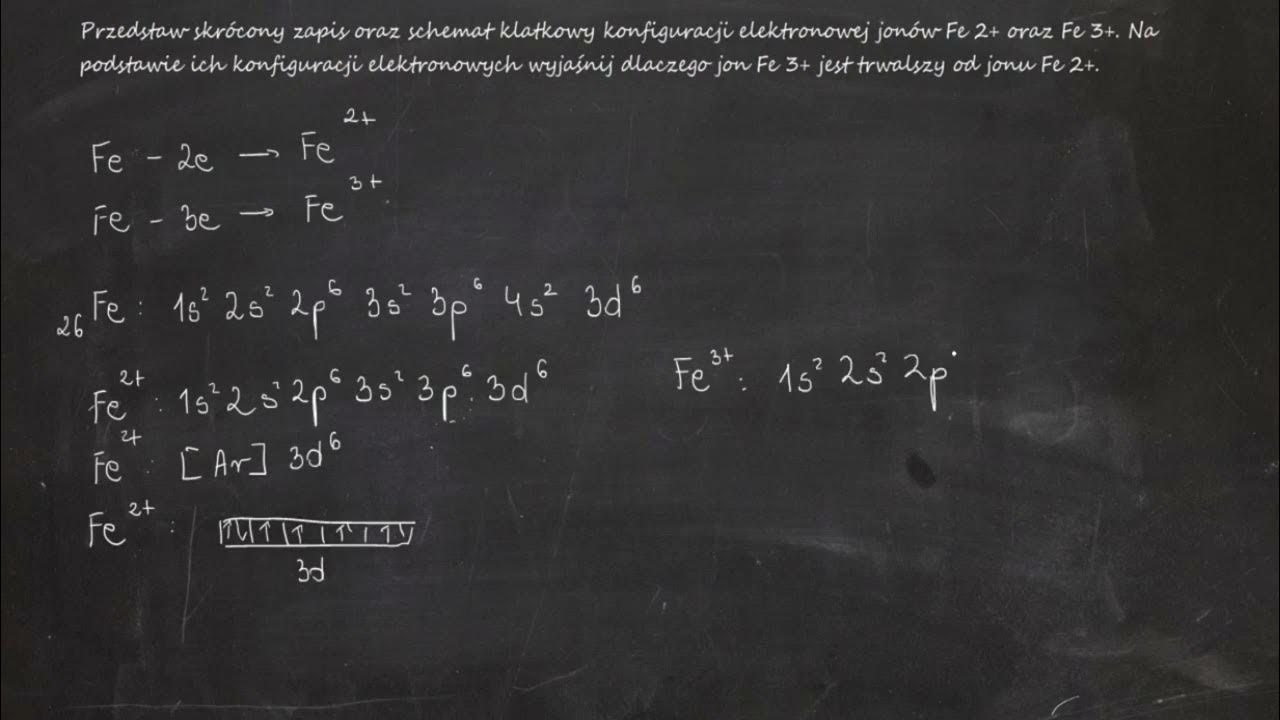 Przedstaw skrócony zapis oraz schemat klatkowy konfiguracji elektronowej jonów Fe 2+ oraz Fe 3+. Na
podstawie ich konfiguracji elektronowych wyjaśnij dlaczego jon Fe 3+ jest trwalszy od jonu Fe 2+.
Fe - 2e → Fe²⁺
Fe - 3e → Fe³⁺
₂₆Fe : 1s² 2s² 2p⁶ 3s² 3p⁶ 4s² 3d⁶
Fe²⁺ : 1s² 2s² 2p⁶ 3s² 3p⁶ 3d⁶
Fe²⁺ : [Ar] 3d⁶
Fe²⁺ : ↑↓ ↑ ↑ ↑ ↑
3d
Fe³⁺ : 1s² 2s² 2p